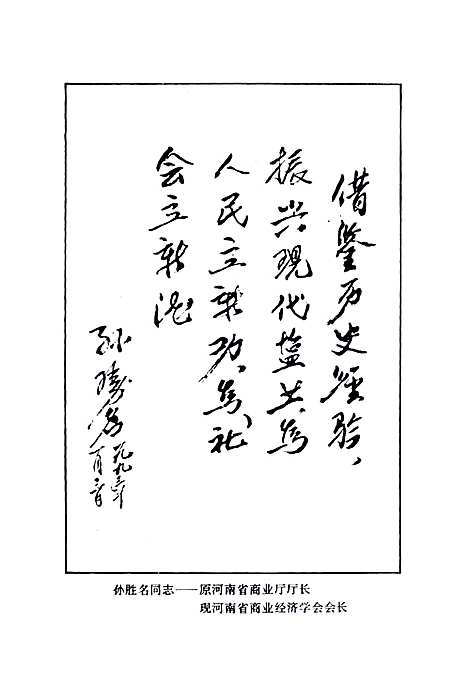 借鉴历史经验，
振兴现代盐业，为
人民立新功，为社
会立新
孙胜名
一九九三年
孙胜名同志——原河南省商业厅厅长
现河南省商业经济学会会长